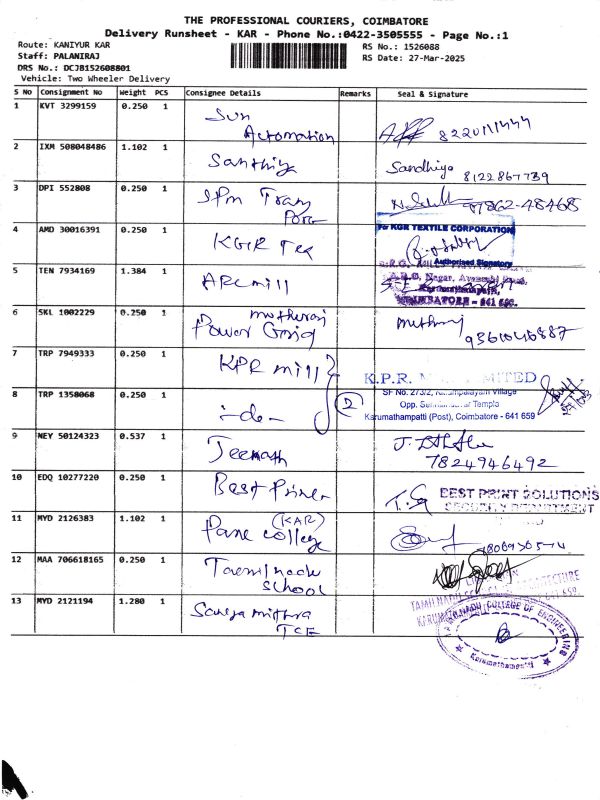 THE PROFESSIONAL COURIERS, COIMBATORE
Delivery Runsheet - KAR - Phone No.:0422-3505555 - Page No.:1
Route: KANIYUR KAR
RS No.: 1526088
Staff: PALANIRAJ
RS Date: 27-Mar-2025
DRS No.: DCJB152608801
Vehicle: Two Wheeler Delivery
S NO Consignment No Weight PCS Consignee Details Remarks Seal & Signature
1 KVT 3299159 0.250 1 Sun
Automation
2 IXM 508048486 1.102 1 Santhiya Sandhiya
8122867739
3 DPI 552808 0.250 1 Tran 97862-48468
4 AMD 30016391 0.250 1 KGR Tex For KGR TEXTILE CORPORATION
Authorised Signatory
5 TEN 7934169 1.384 1 ARC mill
COIMBATORE - 641 659.
6 SKL 1002229 0.250 1 mothuraj
Power
9361046887
7 TRP 7949333 0.250 1 KPR mill K.P.R. MILL LIMITED
8 TRP 1358068 0.250 1 -do- 2 SF No. 273/2, Village
Opp. Temple
Karumathampatti (Post), Coimbatore - 641 659
9 NEY 50124323 0.537 1
7824946492
10 EDQ 10277220 0.250 1 Best Prine BEST PRINT SOLUTIONS
SECURITY DEPARTMENT
11 MYD 2126383 1.102 1 (KAR)
college
12 MAA 706618165 0.250 1 Tamilnadu
School
13 MYD 2121194 1.280 1 TCE
COLLEGE OF ENGINEERING
Karumathampatti